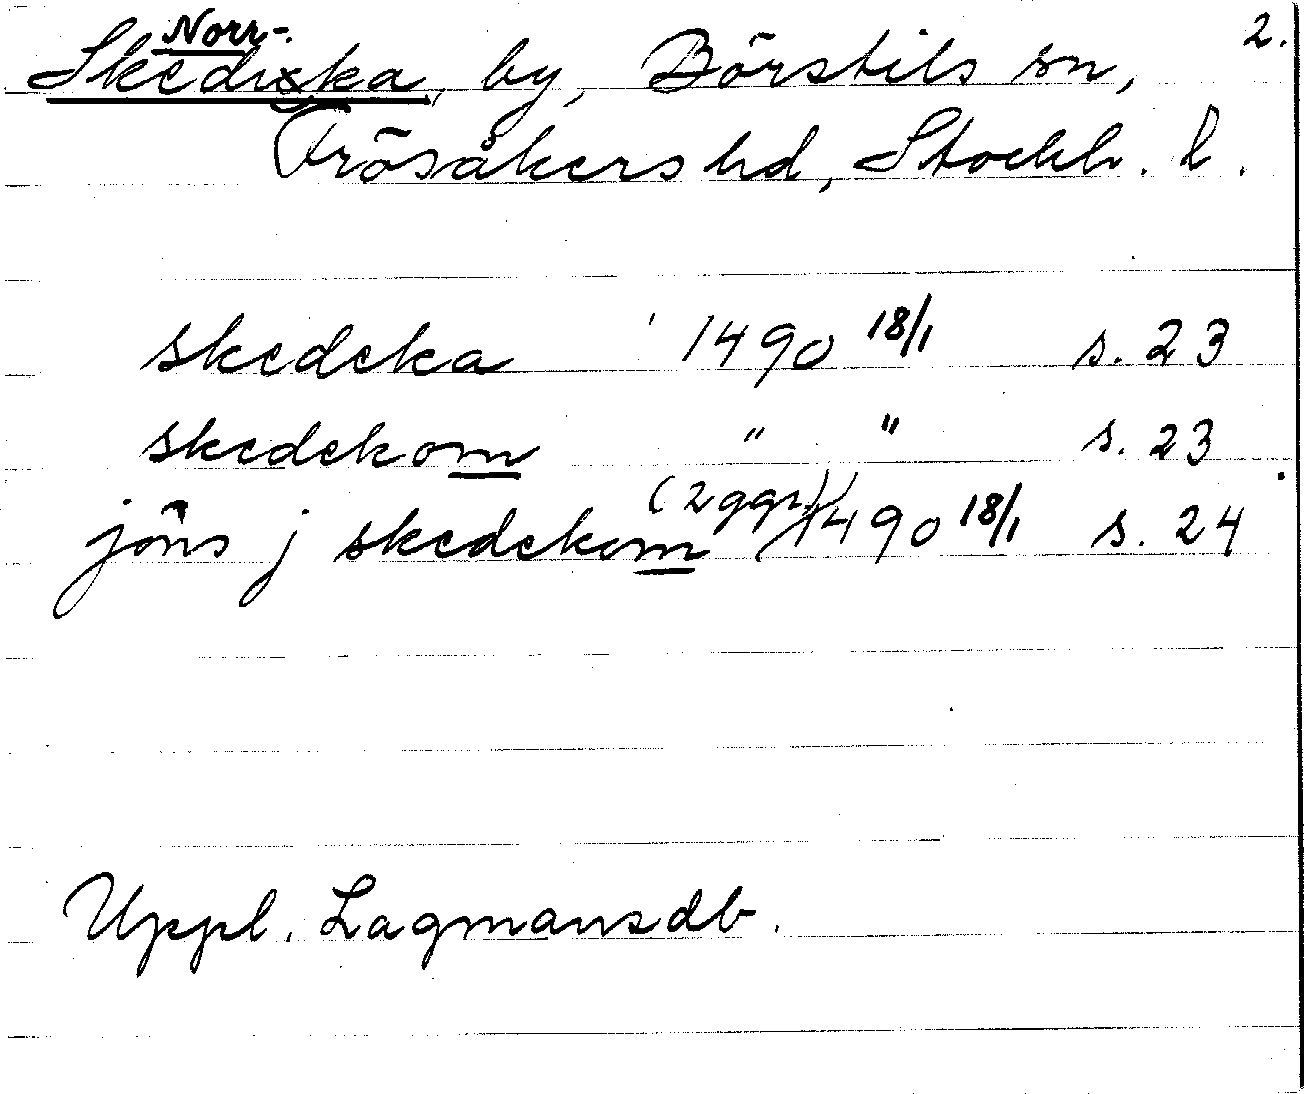 2.
Norr-
Skediska, by, Börstils sn,
Frösåkers hd, Stockh. l.
skedeka 1490 18/1 s. 23
skedekom " " s. 23
jöns j skedekom (2 ggr) 1490 18/1 s. 24
Uppl. Lagmansdb.